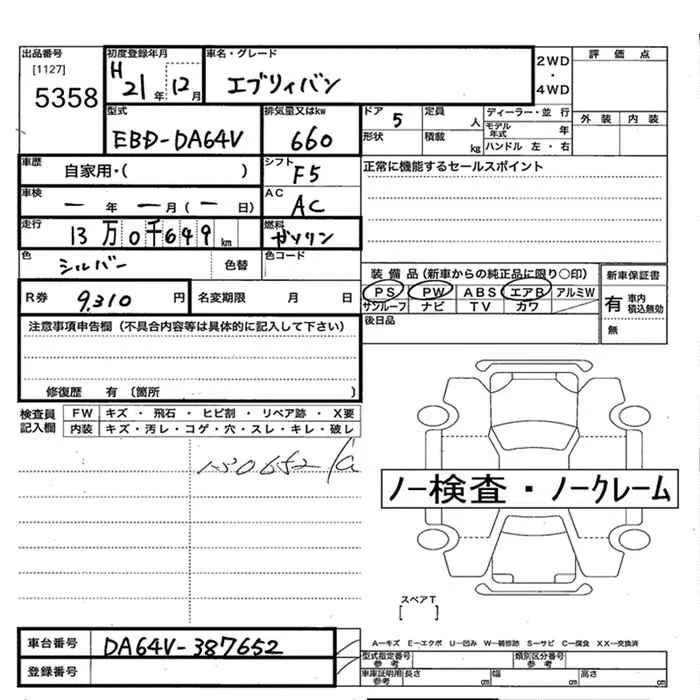 出品番号
[1127]
5358
初度登録年月
H21年12月
車名・グレード
エブリィバン
2WD
・
4WD
評価点
外装 内装
型式
EBD-DA64V
排気量又はkw
660
ドア 5
定員 人
形状
積載 kg
ディーラー・並行
モデル年式 年
ハンドル 左・右
車歴
自家用・( )
シフト
F5
正常に機能するセールスポイント
車検
ー年ー月(ー日)
AC
AC
走行
13万0千649km
燃料
ガソリン
色
シルバー
色替
色コード
装備品(新車からの純正品に限り○印)
PS PW ABS エアB アルミW
サンルーフ ナビ TV カワ
後日品
新車保証書
有 車内積込無効
無
R券 9,310円
名変期限 月 日
注意事項申告欄(不具合内容等は具体的に記入して下さい)
修復歴 有(箇所 )
検査員記入欄
FW キズ・飛石・ヒビ割・リペア跡・X要
内装 キズ・汚レ・コゲ・穴・スレ・キレ・破レ
ノー検査・ノークレーム
スペアT
[ ]
A-キズ E-エクボ U-凹み W-補修跡 S-サビ C-腐食 XX-交換済
車台番号 DA64V-387652
登録番号
型式指定番号参考
類別区分番号参考
車庫証明用参考
長さ cm 幅 cm 高さ cm